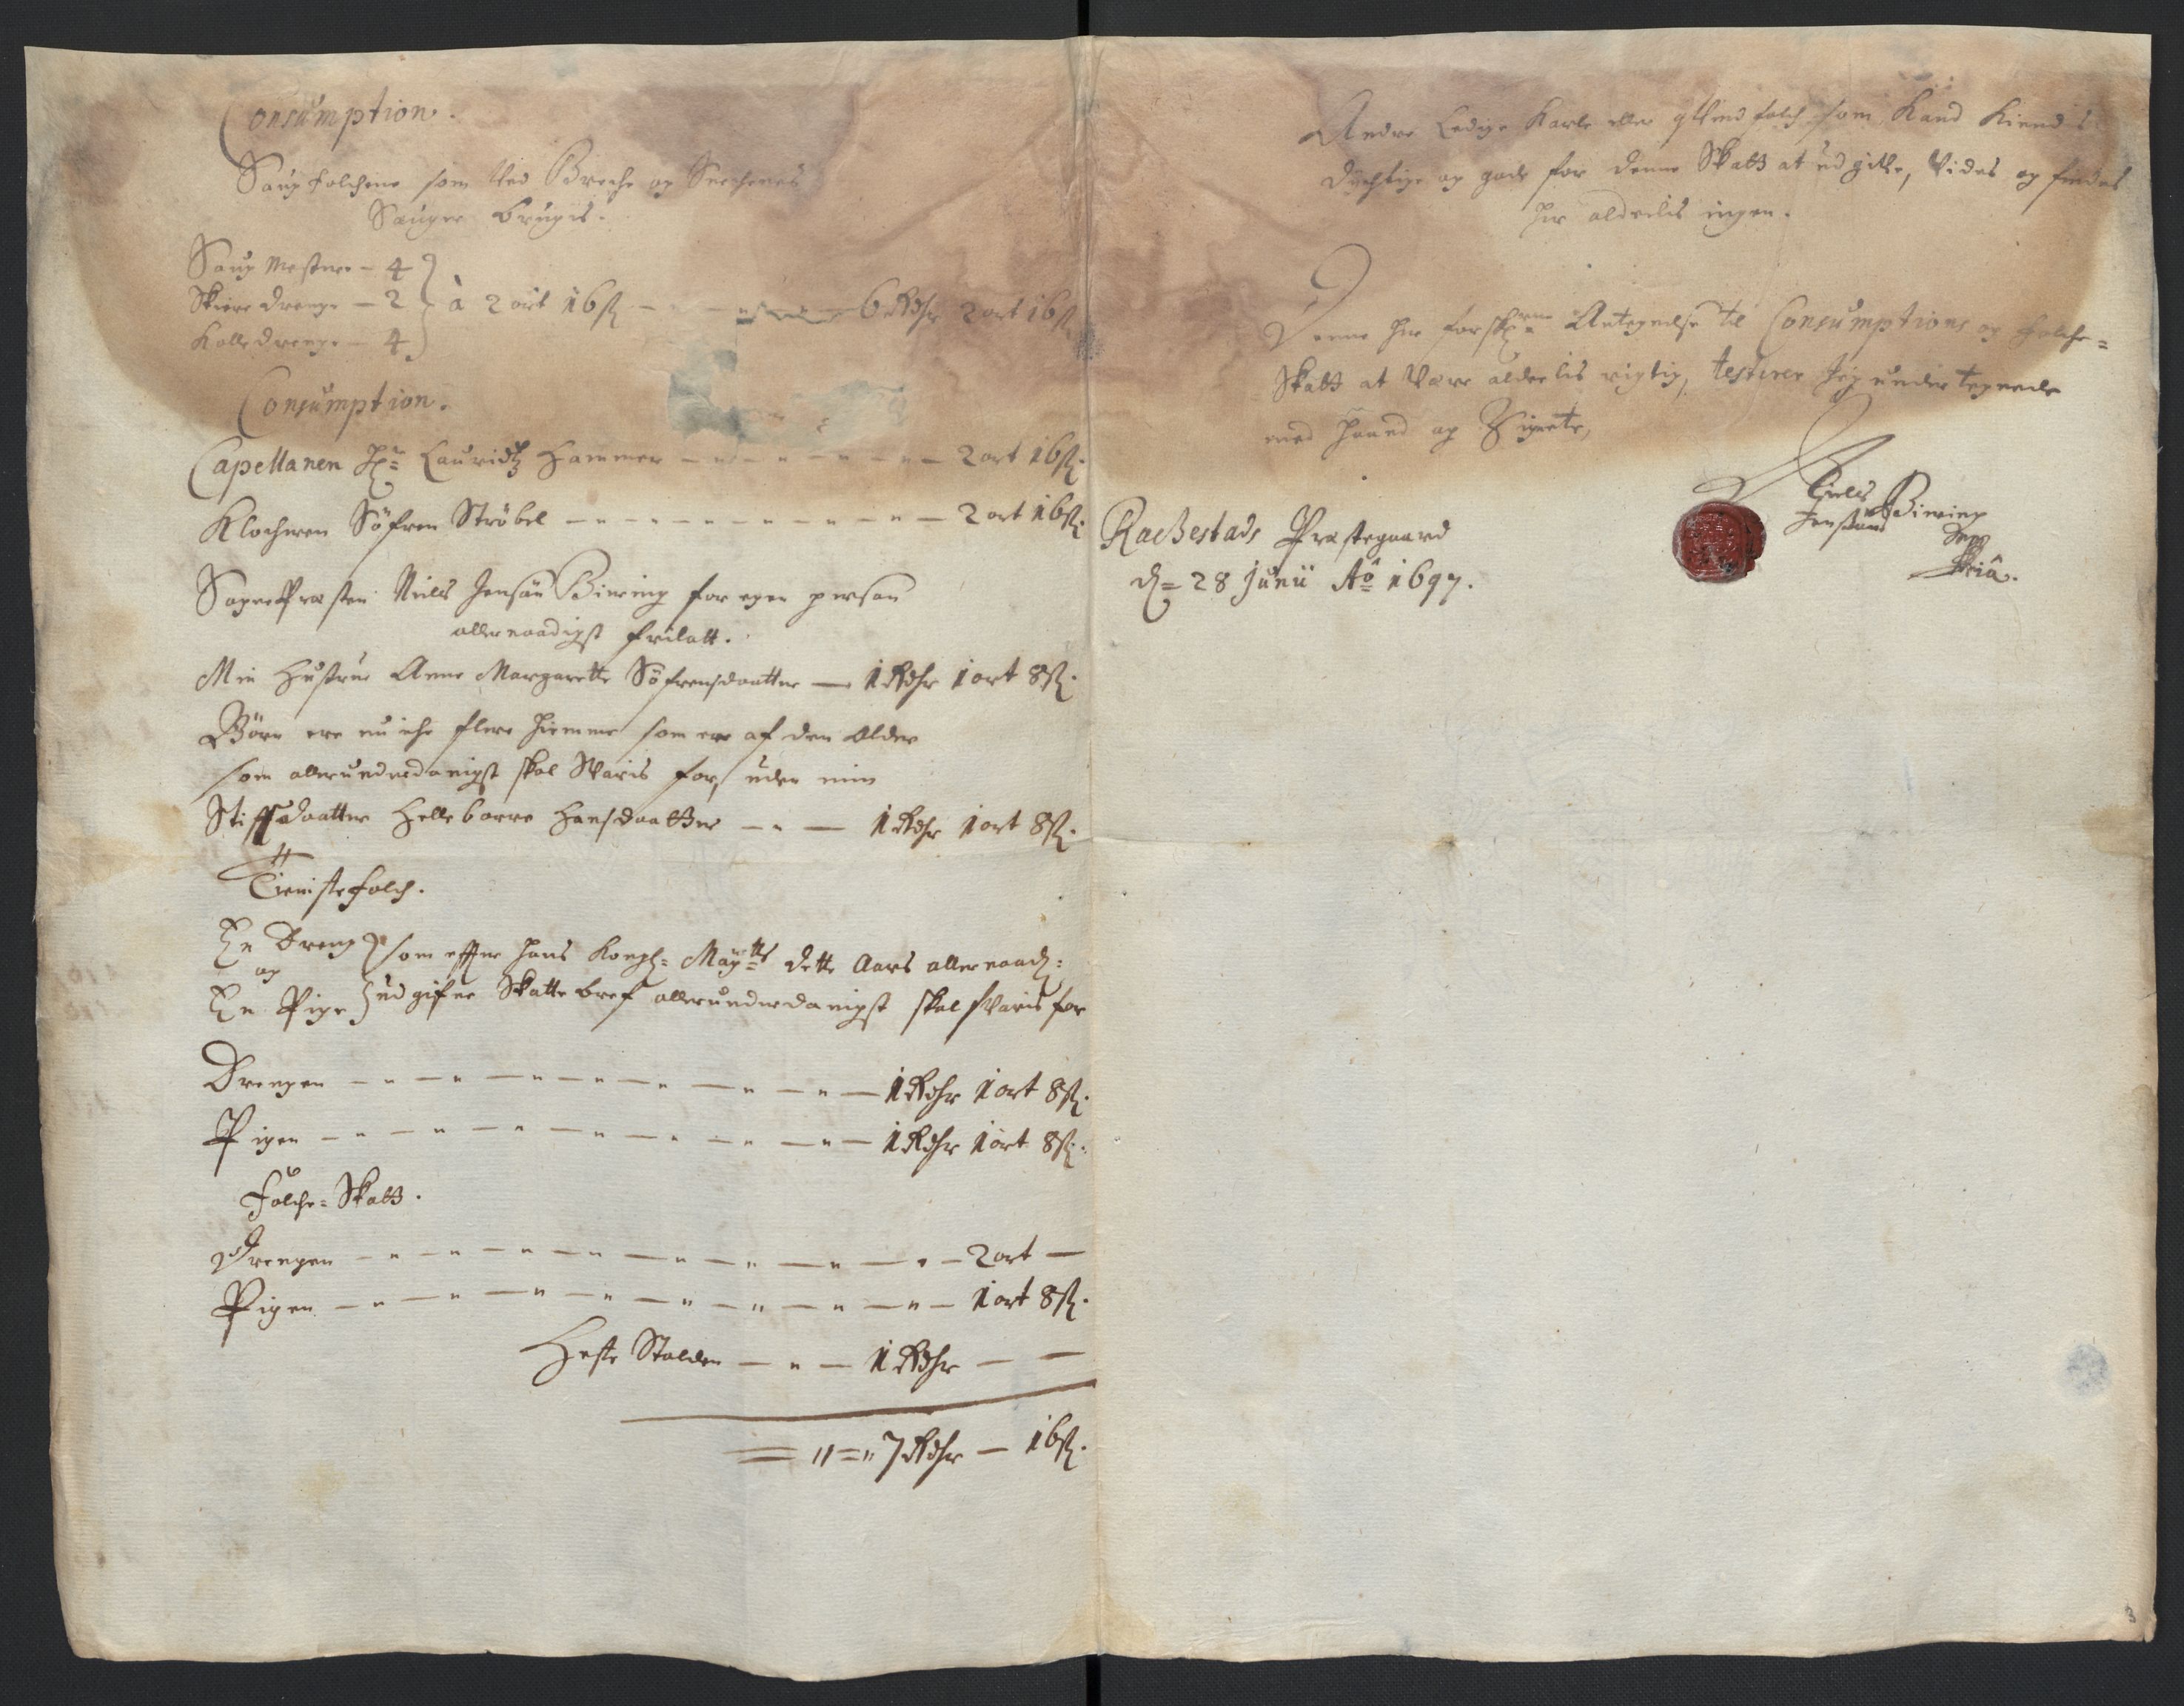 Consumption.
Saugfolchene som ved Breche og Seechenes
Sauger brugis.
Saug Mestere – 4
Skiere drenge – 2 } à 2 ort 16 sk – – – 6 Rdhr 2 ort 16 sk
Kolle drenge – 4
Consumption.
Capellanen Hr: Lauridtz Hammer – – – 2 ort 16 sk.
Klocheren Söfren Ströbel – – – 2 ort 16 sk.
Sogne Præsten Niels Jensön Biering for egen person
allernaadigst frilatt.
Min Hustrue Anne Margarette Söfrensdaatter — 1 Rdhr 1 ort 8 sk.
Börn ere nu iche flere hiemme som ere af den Alder
som allerunderdanigst skal Svaris for, uden min
Stifdaatter Helleborre Hansdaatter – – 1 Rdhr 1 ort 8 sk.
Tieniste folch.
En Dreng } som effter hans Kongl: Mayts dette Aars allernaad:
og
En Pige } udgifne Skatte bref allerunderdanigst skal svaris for
Drengen – – – 1 Rdhr 1 ort 8 sk.
Pigen – – – 1 Rdhr 1 ort 8 sk.
Folche-Skatt.
Drengen – – – 2 ort –
Pigen – – – 1 ort 8 sk.
Heste Stalden – – 1 Rdhr – –
7 Rdhr – 16 sk.
Andre Ledige Karle eller qvindfolch som Kand Kiendis
dychtige og gode for denne Skatt at udgifve, Vides og findes
her aldeelis ingen.
Denne her forskrne Antegnelse til Consumptions og folche-
Skatt at Være aldeelis rigtig, testerer Jeg undertegnede
med Haand og Signete,
Rachestads Præstegaard
d: 28 Junii Ao 1697.
Niels Biering
Jensøn
3